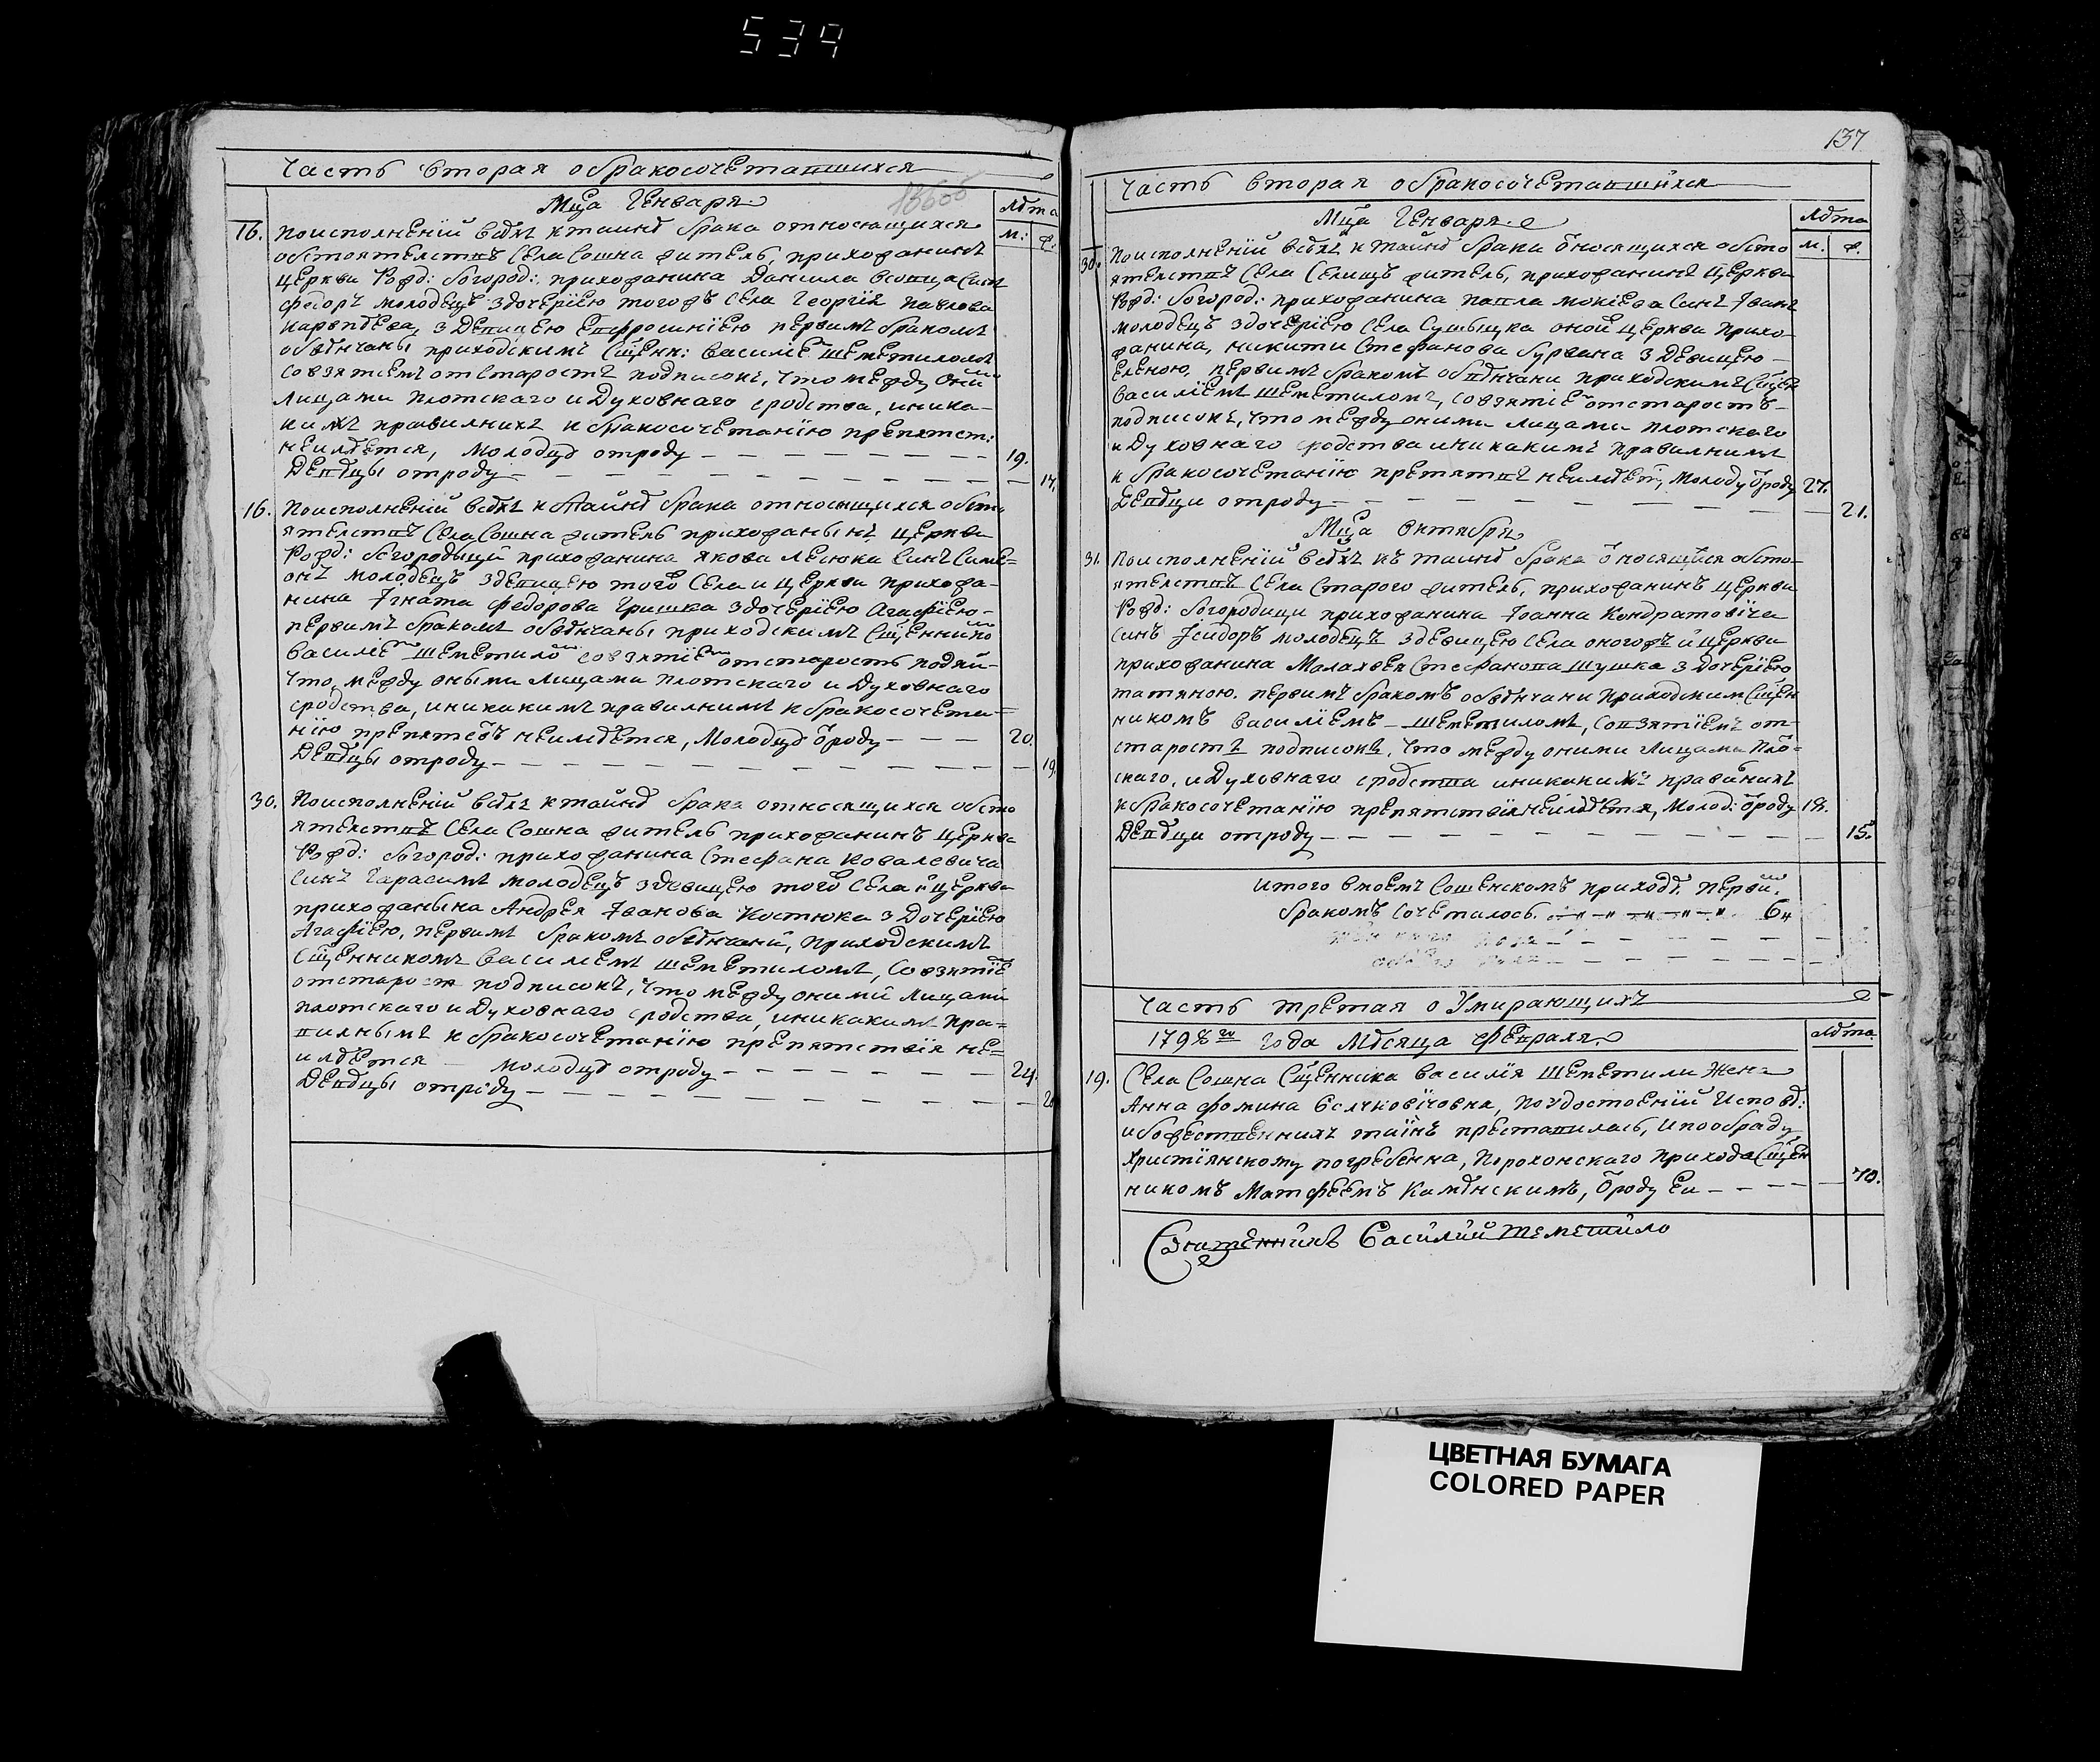 539
Часть вторая о бракосочетавшихся
Мца Генваря
Лѣта
м: ф.
16. По исполненїй всѣхъ к таинѣ брака относящихся
обстоятелствъ Села Сошна житель, прихожанинъ
церкви Рожд: богород: прихожанина Данила Синъ
федоръ молодецъ здочерїею тогожъ Села Георгїя Павлова
з девицею Епфросинїею первимъ бракомъ
обвѣнчаны приходскимъ Сщенн: Василїе Шеметиломъ
совзятемъ от Старостъ подписокъ, что между оними
лицами плотскаго и Духовнаго сродства, иника-
кихъ правилнихъ к бракосочетанїю препятст:
неимѣется, Молодцу отроду — 19.
Девѣцы отроду — 17.
16. По исполненїй всѣхъ к тайнѣ брака относящихся обсто
ятелствъ Села Сошна житель прихожанынъ церкви
Рожд: богородыцы прихожанина Якова Лесюка Синъ Симе=
онъ молодецъ здевицею того Села и церкви прихожа-
нина Їгната Федорова Гришка здочерїею Агафїею-
первимъ бракомъ обвѣнчаны приходскимъ Сщеннико
Василїе Шеметило совзятїе отстарость подпи-
что, между оными лицами плотскаго и Духовнаго
сродства, иникакимъ правилнимъ к бракосочета=
нїю препятсвъ неимѣется, Молодцу ѿроду — 20.
Девѣцы отроду — 19.
30. По исполненїй всѣхъ к тайнѣ брака относящихся обсто
ятелствъ Села Сошна житель прихожанинъ церкви
Рожд: богород: прихожанина Стефана Ковалевича
Синъ Гарасимъ молодецъ здевицею того Села и церкви
прихожанына Андрея Їванова Костюка з Дочерїею
Агафїею, первимъ бракомъ обвѣнчаны, приходскимъ
Сщенникомъ Василемъ Шеметиломъ, совзятїе
отстарост подписокъ, что между оними лицами
плотскаго и Духовнаго сродства, иникакимъ пра=
вилнымъ к бракосочетанїю препятствїя не=
имѣется — Молодцу отроду — 24.
Девѣцы отроду —
137
Часть вторая о бракосочетавшихся
Мца Генваря
Лѣта
м. ф.
30. По исполненїй всѣхъ к тайнѣ брака ѿносящихся обсто
ятелствъ Села Селищъ житель, прихожанинъ церкви
Рожд: богород: прихожанина Павла Синъ Їванъ
молодецъ здочерїею Села Сушыцка оной церкви прихо-
жанина, никити Стефанова з Девицею-
Еленою, первимъ бракомъ обвѣнчани приходскимъ Сщен
Василїемъ Шеметиломъ, совзятїе отстарость-
подписокъ, что между оними лицами плотскаго
и Духовнаго сродства иникакимъ правилнимъ
к бракосочетанїю препятвъ неимѣет, Молодцу ѿроду 27.
Девѣци отроду — 21.
Мца Октября
31. По исполненїй всѣхъ къ таинѣ брака ѿносящися обсто-
ятелствъ Села Старого житель, прихожанинъ церкви
Рожд: богородици прихожанина Їоанна Кондратовїча
синъ Їсидоръ молодецъ здевицею села оногожъ и церкви
прихожанина Малахвея Стефанова Шушка з дочерїею
татяною. первимъ бракомъ обвѣнчани приходским Сщен
никомъ василїемъ — Шеметиломъ, совзятїемъ от-
старостъ подписокъ, что между оними лицами пло=
скаго, и Духовнаго сродства иникакимъ правилнихъ
к бракосочетанїю препятствїя неимѣетя, Молод: ѿроду 18.
Девѣци отроду — 15.
Итого вмоемъ Сошенскомъ приходѣ первим
бракомъ сочеталось 6
Часть третая о Умирающихъ
1798го года Мѣсяца Февраля.
Лѣта.
19. Села Сошна Сщенника Василїя Шеметили жена
Анна Фомина, По удостоенїй Исповѣд:
ибожественнихъ таинъ преставилась, ипообряду
Христїянскому погребенна, Порохонскаго Прихода Сщен
никомъ Матфеемъ Камѣнскимъ, ѿроду Еи — 70.
Священникъ Василий Шеметило
ЦВЕТНАЯ БУМАГА
COLORED PAPER